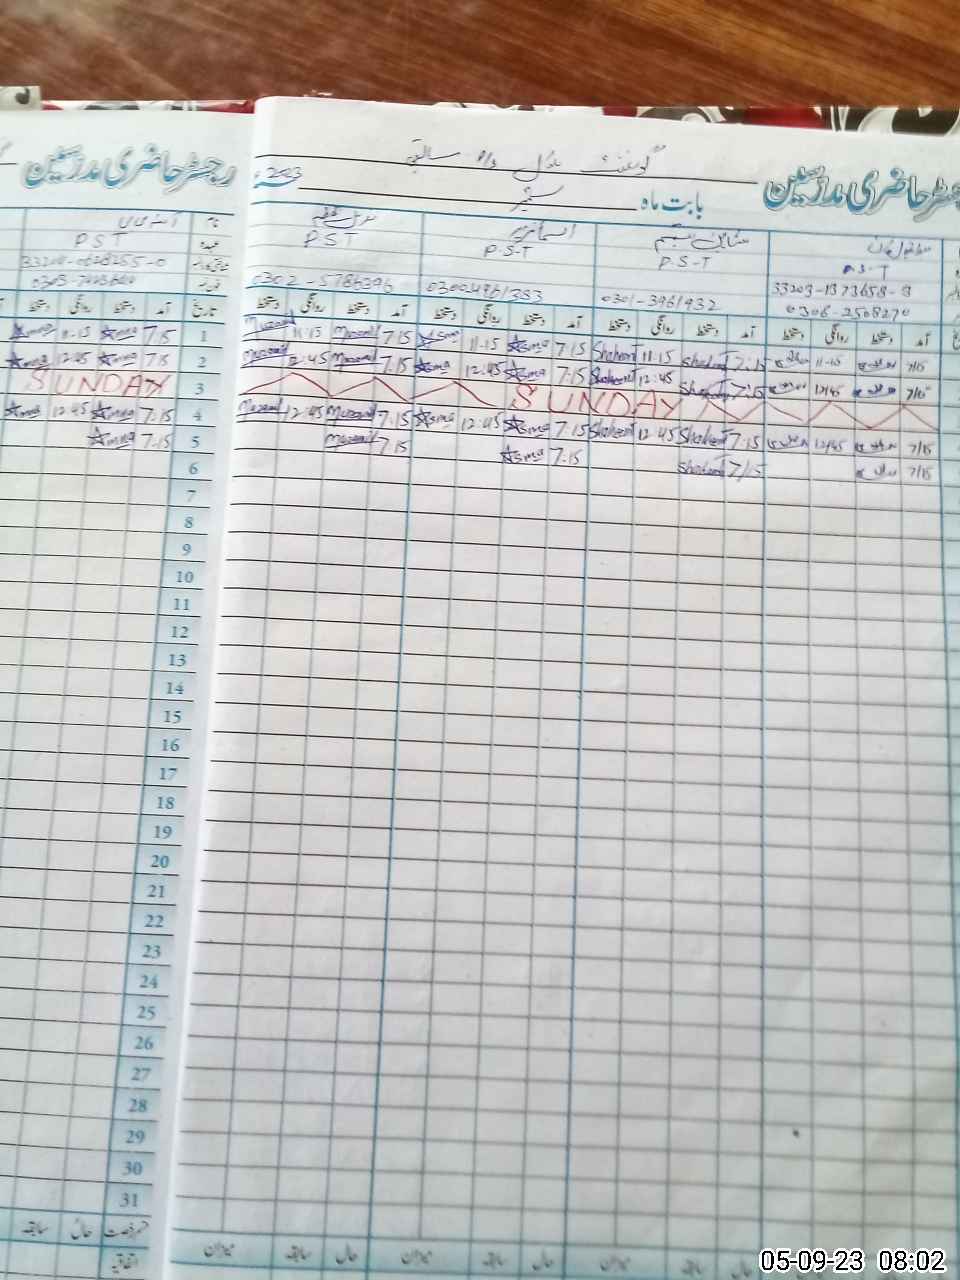 رجسٹر حاضری مدرّسین
گورنمنٹ
2023ء
بابت ماہ ستمبر
رجسٹر حاضری مدرّسین
نام
عہدہ P S T
P S T
P-S-T
P-S-T
P.S-T
0303-
0302-5786396
03004961383
0301-3961932
33203-1373658-3
0306-2508270
دستخط روانگی دستخط آمد تاریخ
دستخط روانگی دستخط آمد دستخط روانگی دستخط آمد دستخط روانگی دستخط آمد دستخط روانگی دستخط آمد
Asma 11.15 Asma 7.15 1 Muzamil 11.15 Muzamil 7.15 Asma 11.15 Asma 7.15 Shaheen 11.15 Shaheen 7.15 11.15 7/15
Asma 12:45 Asma 7.15 2 Muzamil 12.45 Muzamil 7.15 Asma 12:45 Asma 7.15 Shaheen 12:45 Shaheen 7.15 12/45 7/15
SUNDAY 3 SUNDAY
Asma 12:45 Asma 7.15 4 Muzamil 12:45 Muzamil 7.15 Asma 12:45 Asma 7.15 Shaheen 12:45 Shaheen 7.15 12/45 7/15
Asma 7.15 5 Muzamil 7.15 Asma 7.15 Shaheen 7/15 7/15
6
7
8
9
10
11
12
13
14
15
16
17
18
19
20
21
22
23
24
25
26
27
28
29
30
31
سابقہ حال قسم رخصت
اتفاقیہ
میزان سابقہ حال میزان سابقہ حال میزان سابقہ حال
05-09-23 08:02